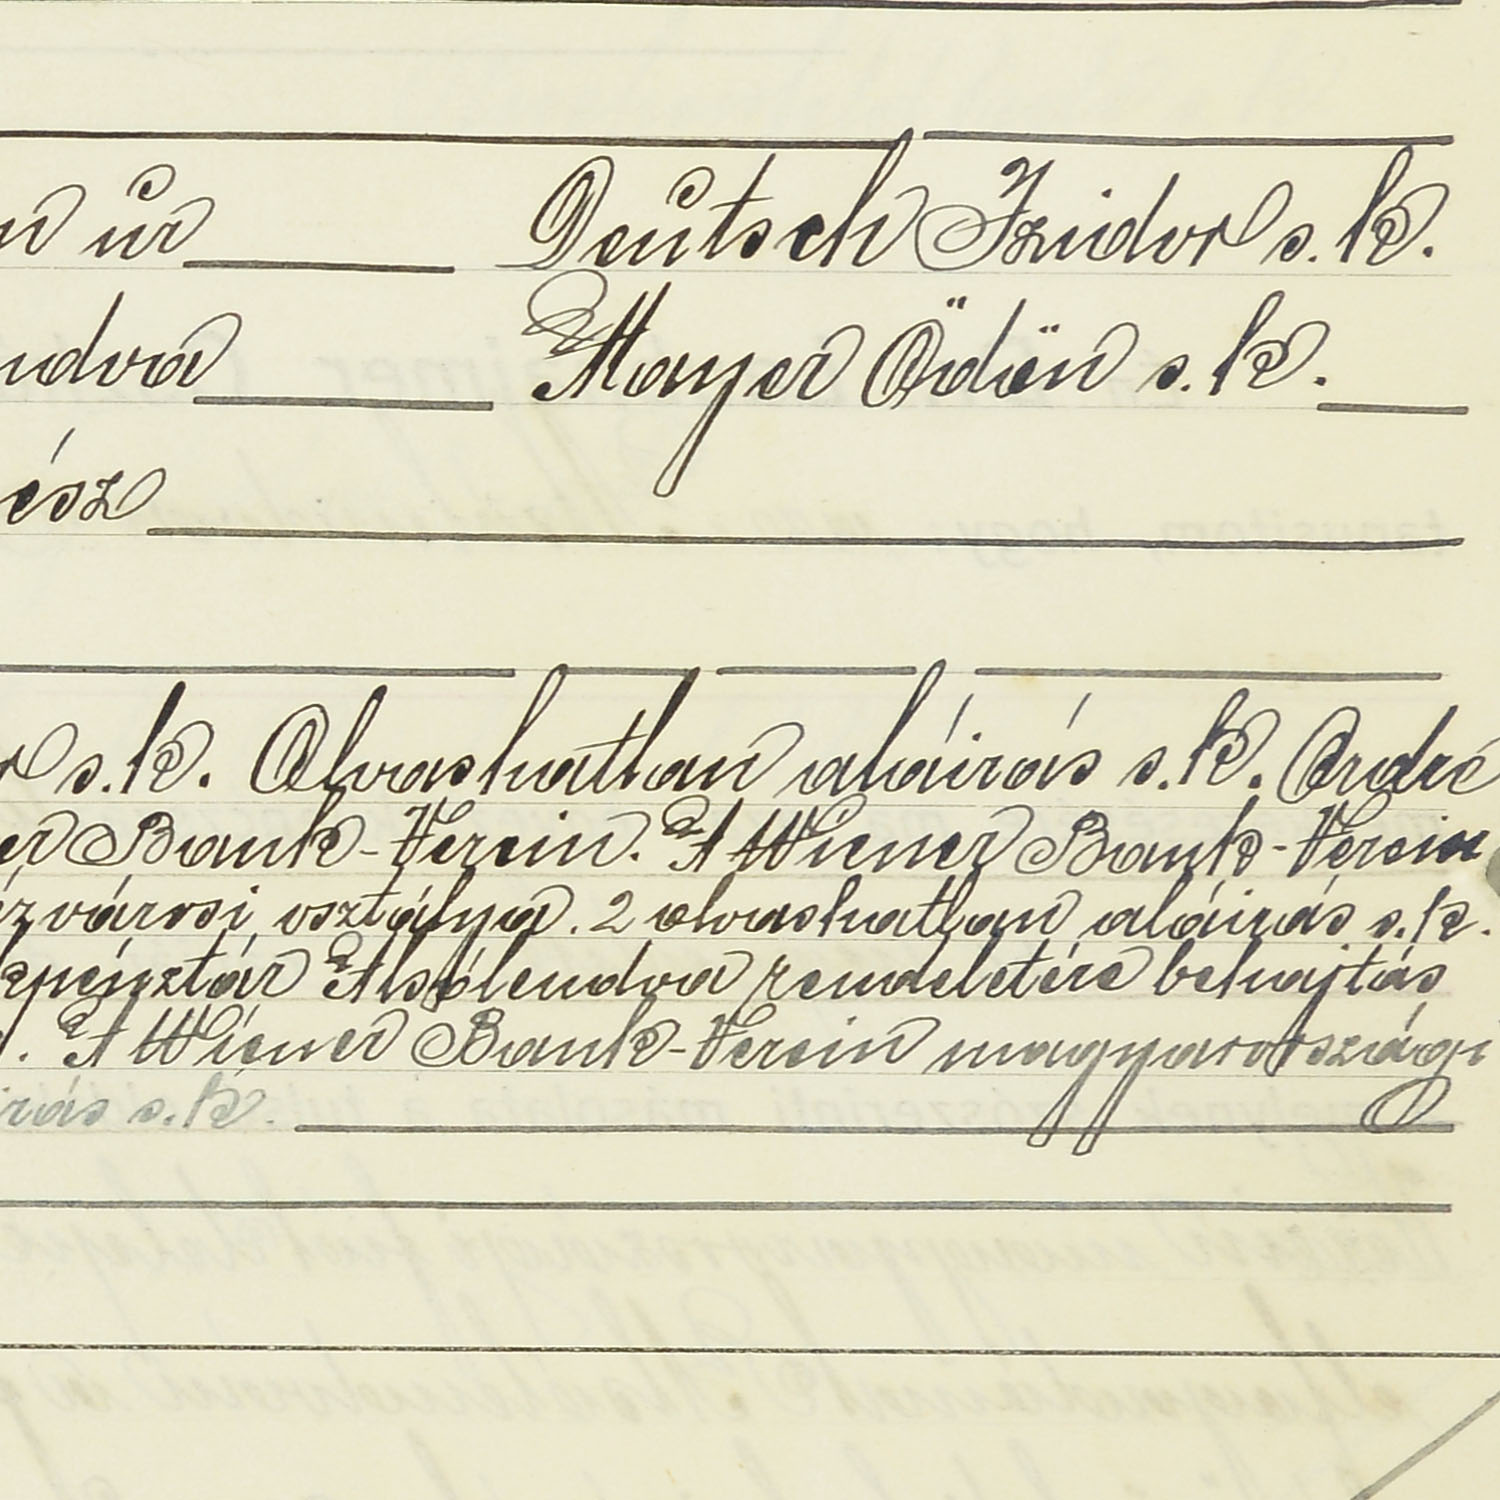 n úr Deutsch Izidor s.k.
ndva Mayer Ödön s.k.
ész
r s.k. Olvashatlan aláirás s.k. Ordré
er Bank-Verein. A Wiener Bank-Verein
ézvárosi osztálya. 2 olvashatlan aláirás s.k.
kpénztár Alsólendva rendeletére behajtás
. A Wiener Bank-Verein magyarországi
irás s.k.